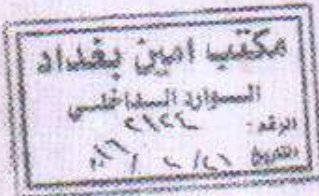 مكتب امين بغداد
السوارد السداخلسي
الرقم: ٢١٢٤
التاريخ